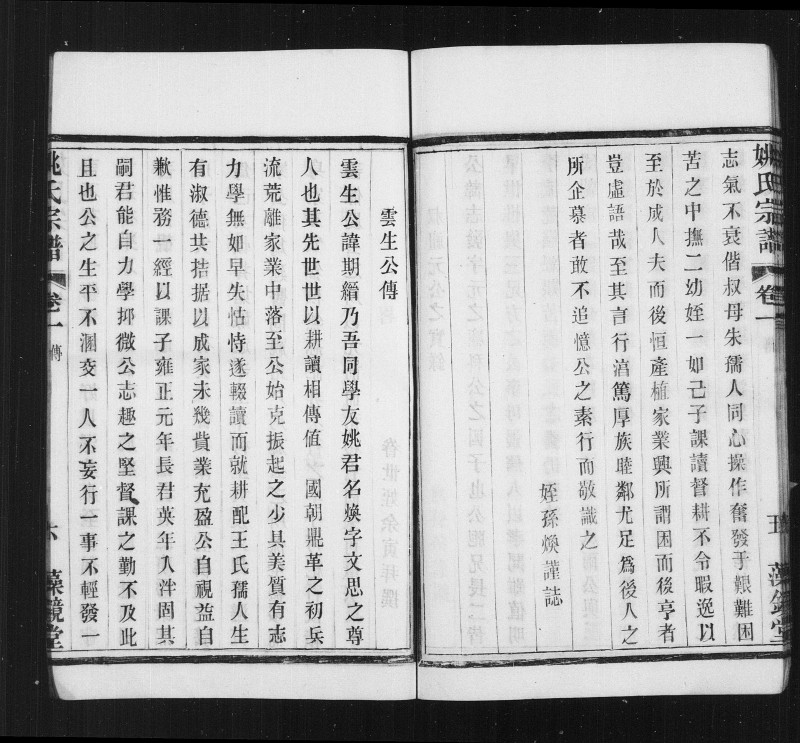 姚氏宗譜
卷一
五
藻鏡堂
志氣不衰偕叔母朱孺人同心操作奮發于艱難困
苦之中撫二幼姪一如己子課讀督耕不令暇逸以
至於成人夫而後恒產植家業興所謂困而後亨者
豈虛語哉至其言行湻篤厚族睦鄰尤足爲後人之
所企慕者敢不追憶公之素行而敬識之
姪孫煥謹誌
雲生公傳
雲生公諱期縉乃吾同學友姚君名煥字文思之尊
人也其先世世以耕讀相傳值國朝鼎革之初兵
流荒離家業中落至公始克振起之少具美質有志
力學無如早失怙恃遂輟讀而就耕配王氏孺人生
有淑德共拮据以成家未幾貲業充盈公自視益自
歉惟務一經以課子雍正元年長君英年入泮固其
嗣君能自力學抑微公志趣之堅督課之勤不及此
且也公之生平不溷交一人不妄行一事不輕發一
姚氏宗譜
卷一
傳
六
藻鏡堂